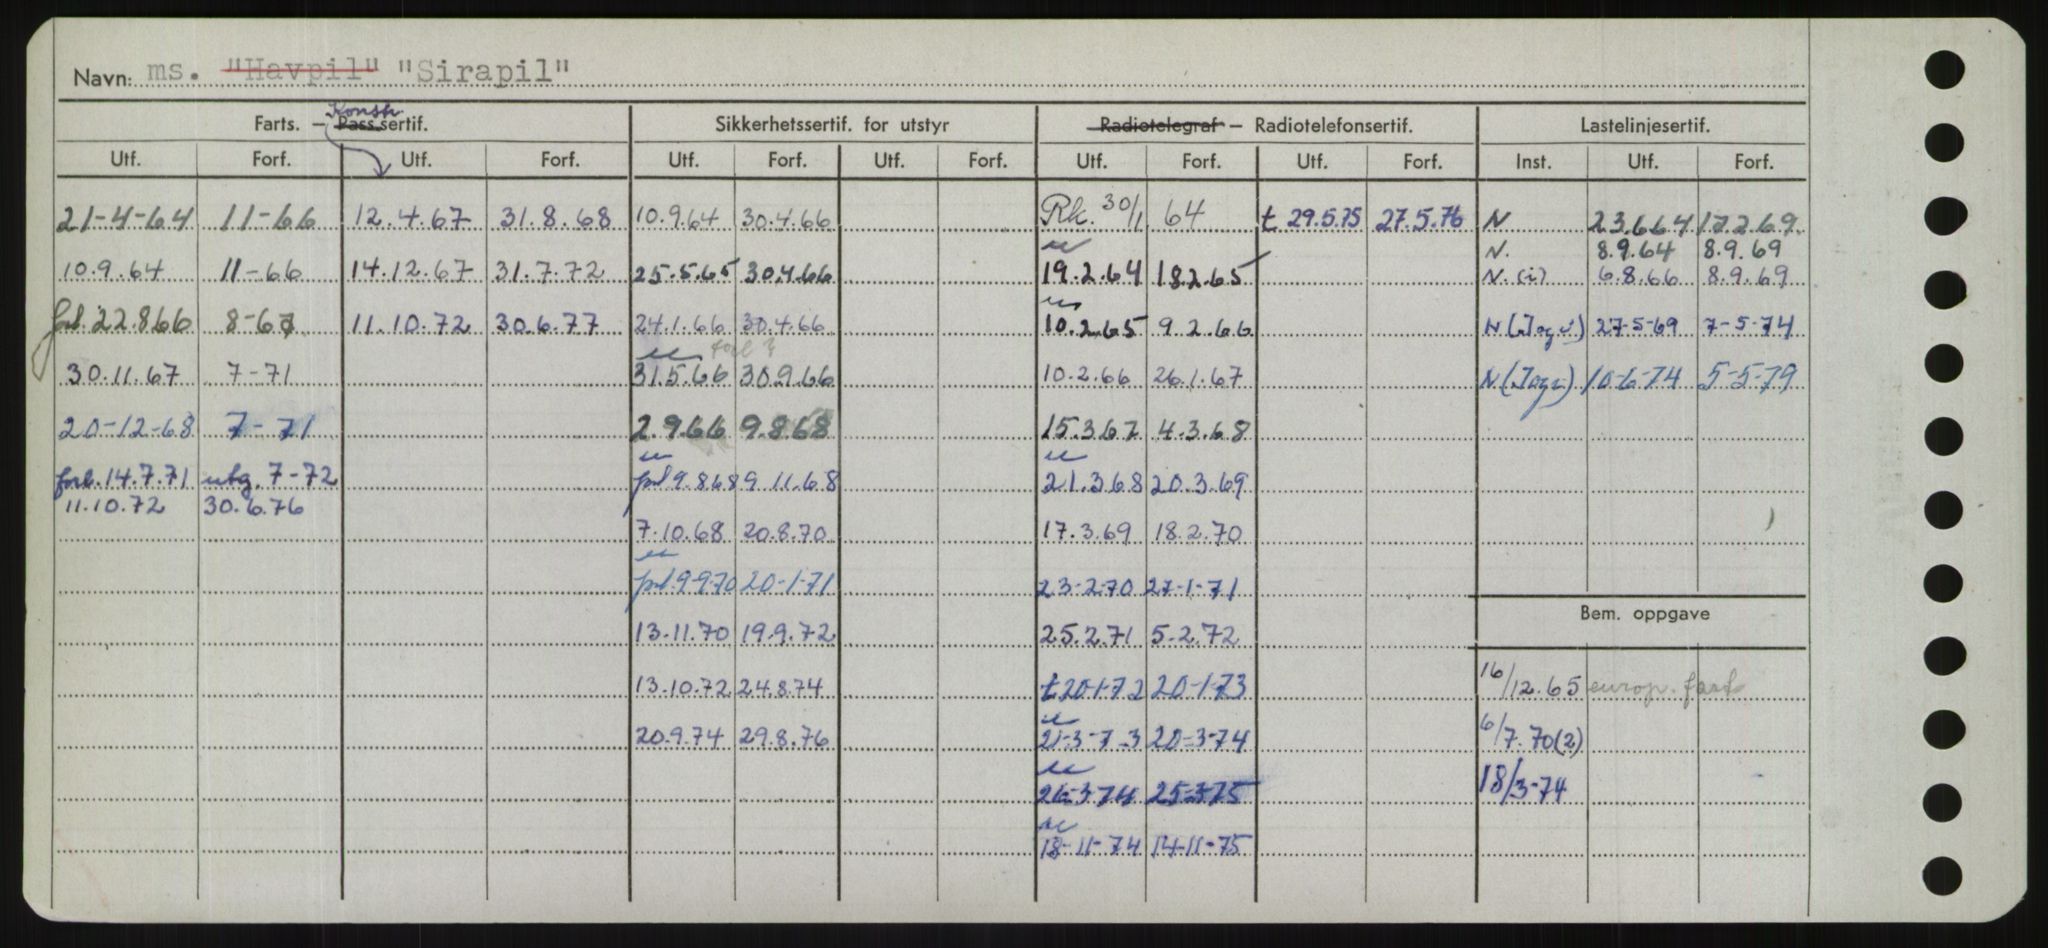 Navn: ms. "Havpil" "Sirapil"
Konstr.
Farts. – Pass.sertif. Sikkerhetssertif. for utstyr Radiotelegraf – Radiotelefonsertif. Lastelinjesertif.
Utf. Forf. Utf. Forf. Utf. Forf. Utf. Forf. Utf. Forf. Utf. Forf. Inst. Utf. Forf.
21-4-64 11-66 12.4.67 31.8.68 10.9.64 30.4.66 Rk. 30/1 64 t 29.5.75 27.5.76 N 23.6.64 17.2.69.
N. 8.9.64 8.9.69
10.9.64 11-66 14.12.67 31.7.72 25.5.65 30.4.66 19.2.64 18.2.65 N.(i) 6.8.66 8.9.69
forl. 22.8.66 8-67 11.10.72 30.6.77 24.1.66 30.4.66 10.2.65 9.2.66 N 27-5-69 7-5-74
30.11.67 7-71 31.5.66 30.9.66 10.2.66 26.1.67 N 10-6-74 5-5-79
20-12-68 7-71 2.9.66 9.8.68 15.3.67 4.3.68
forl. 14.7.71 utg. 7-72 forl 9.8.68 9.11.68 21.3.68 20.3.69
11.10.72 30.6.76
7.10.68 20.8.70 17.3.69 18.2.70
forl. 9-9-70 20-1-71 23-2-70 27-1-71
Bem. oppgave
13.11.70 19.9.72 25.2.71 5-2.72
13.10.72 24.8.74 t 20-1-72 20-1-73 16/12.65 europ. fart
20.9.74 29.8.76 21-3-73 20-3-74 6/7.70(2)
26-3-74 25-3-75 18/3-74
18-11-74 14-11-75